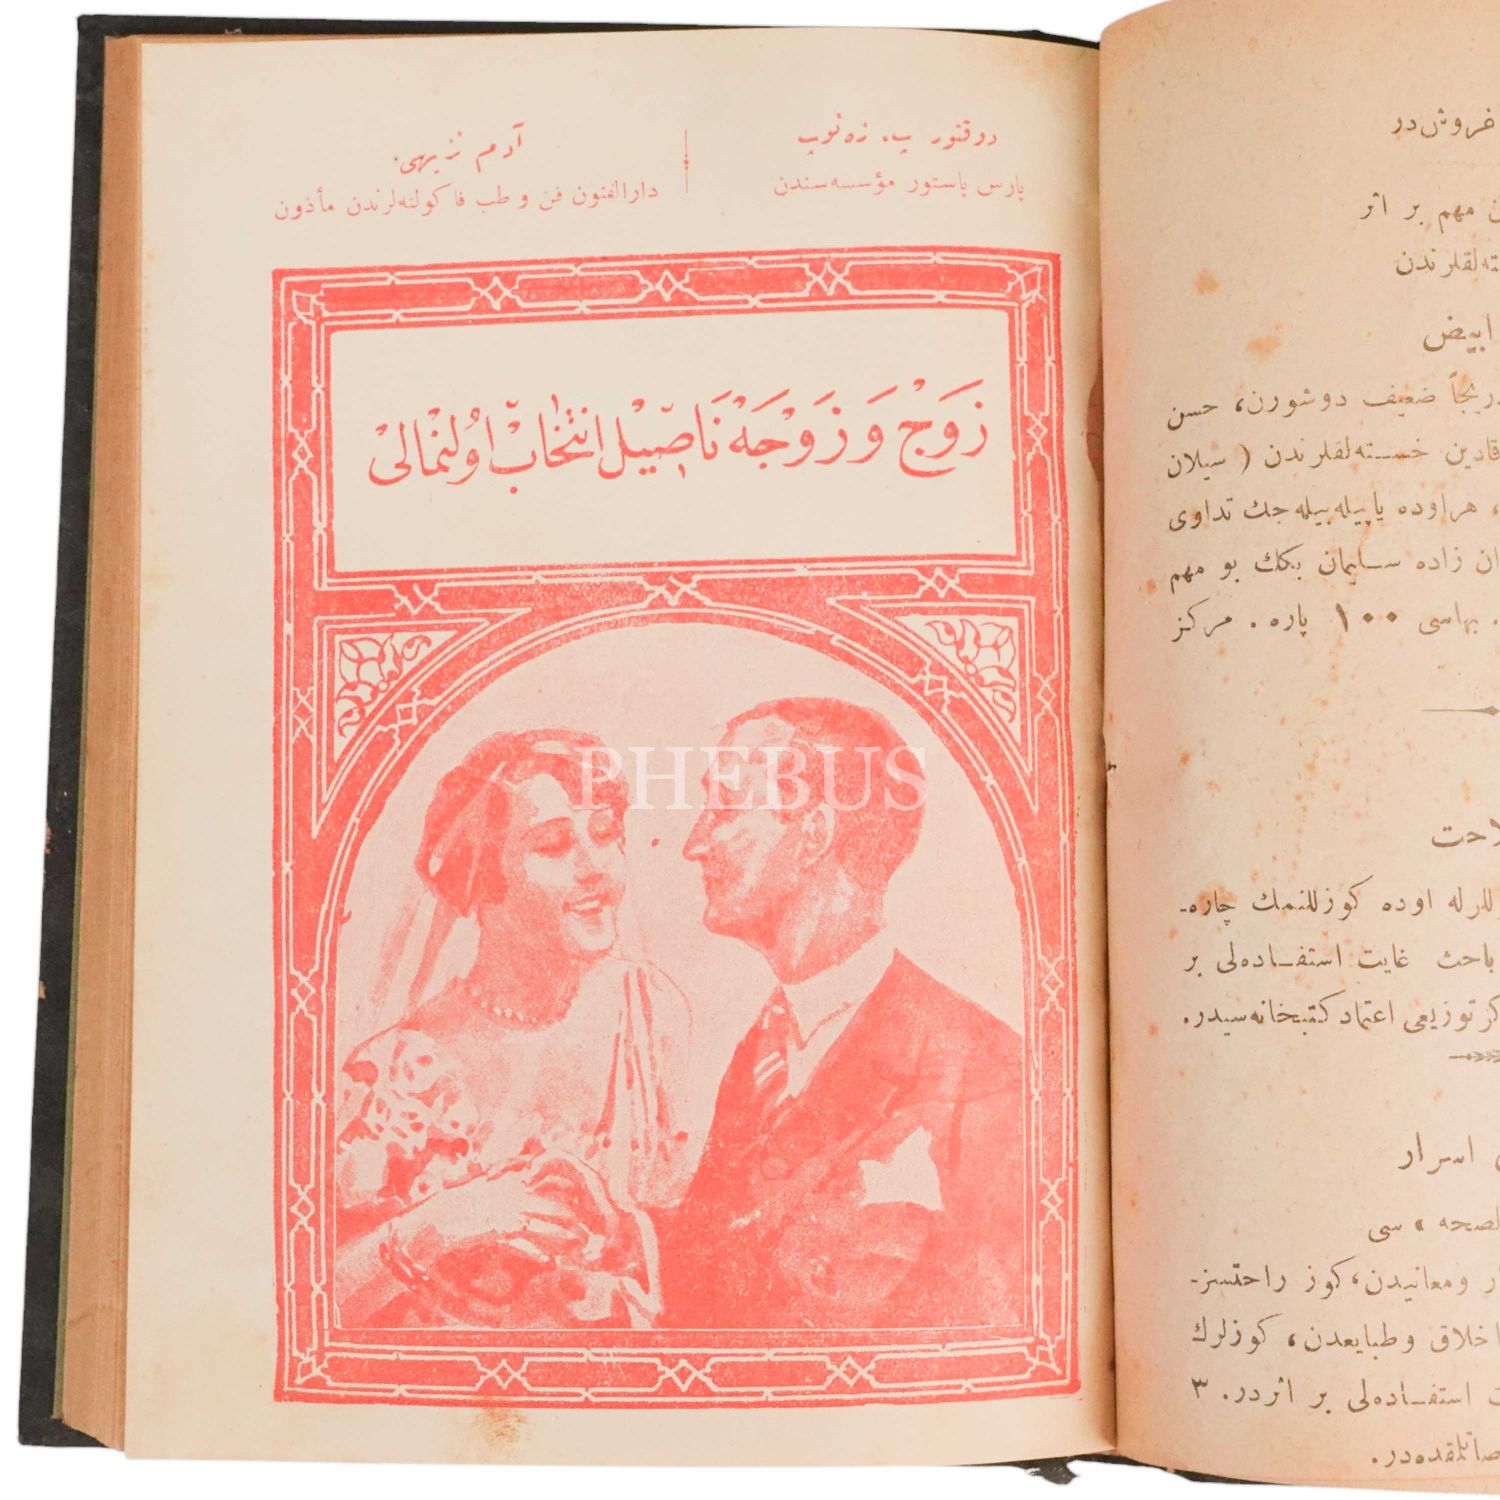 دوقتور پ. زه نوب
پارس پاستور مؤسسه سندن
آدم نزیهی
دارالفنون فن و طب فاكولته لرندن مأذون
زَوْج وَ زَوْجَهْ نَاصِّيل انْتِخَابْ اوُلنْمالی
PHEBUS
غروش در
مهم بر اثر
ته لقلرندن
ابیض
ضعیف دوشورن، حسن
قادین خسته لقلرندن ( سیلان
، هر اوده یاپیله بیله جك تداوی
ان زاده سلیمان بكك بو مهم
. بهاسی ١٠٠ پاره . مركز
للرله اوده كوزللنمك چاره-
باحث غایت استفاده لی بر
كز توزیعی اعتماد كتبخانه سیدر.
اسرار
لصحه » سی
ار و معانیدن، كوز راحتسز-
اخلاق و طبایعدن، كوزلرك
استفاده لی بر اثردر. ٣
صاتلمقده در.